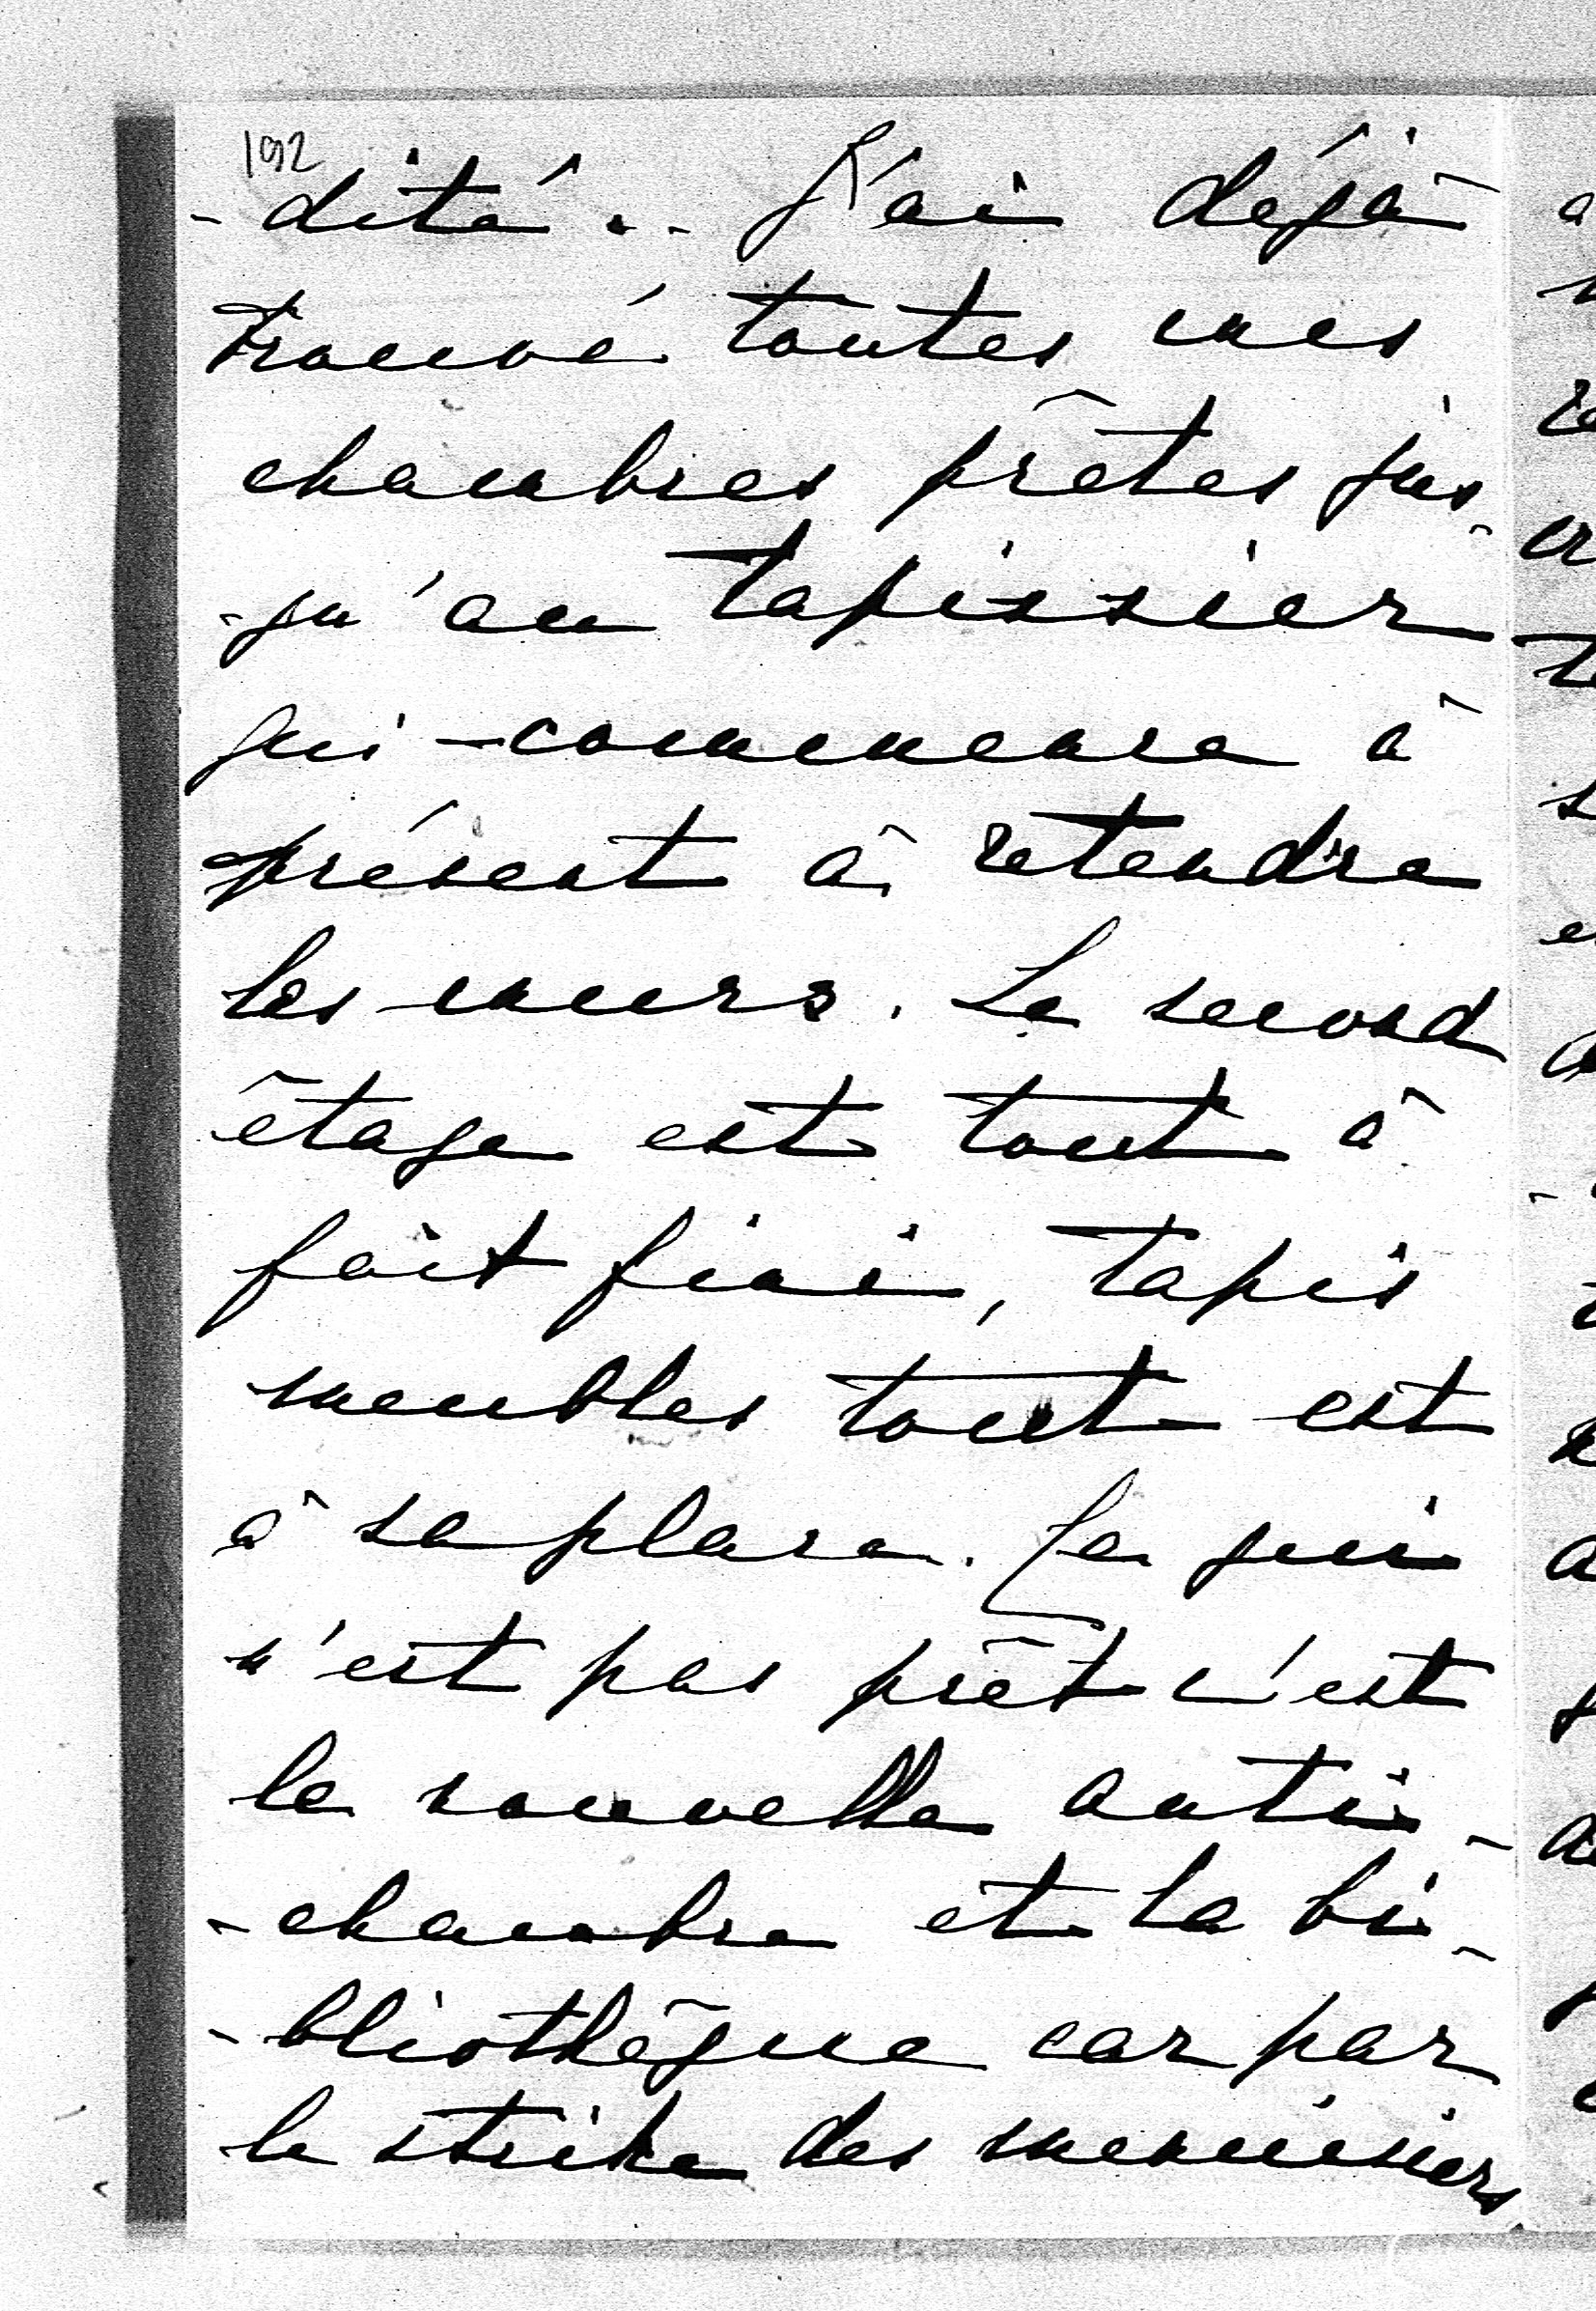 192
-dité... J'ai déjà
trouvé toutes mes
chambres prêtes jus-
-qu'au tapissier
qui commence à
présent à retendre
les murs. Le second
étage est tout à
fait fini, tapis
meubles tout est
à sa place. Ce qui
n'est pas prêt c'est
la nouvelle anti-
-chambre et la bi-
-bliothèque car par
la strike des menuisiers